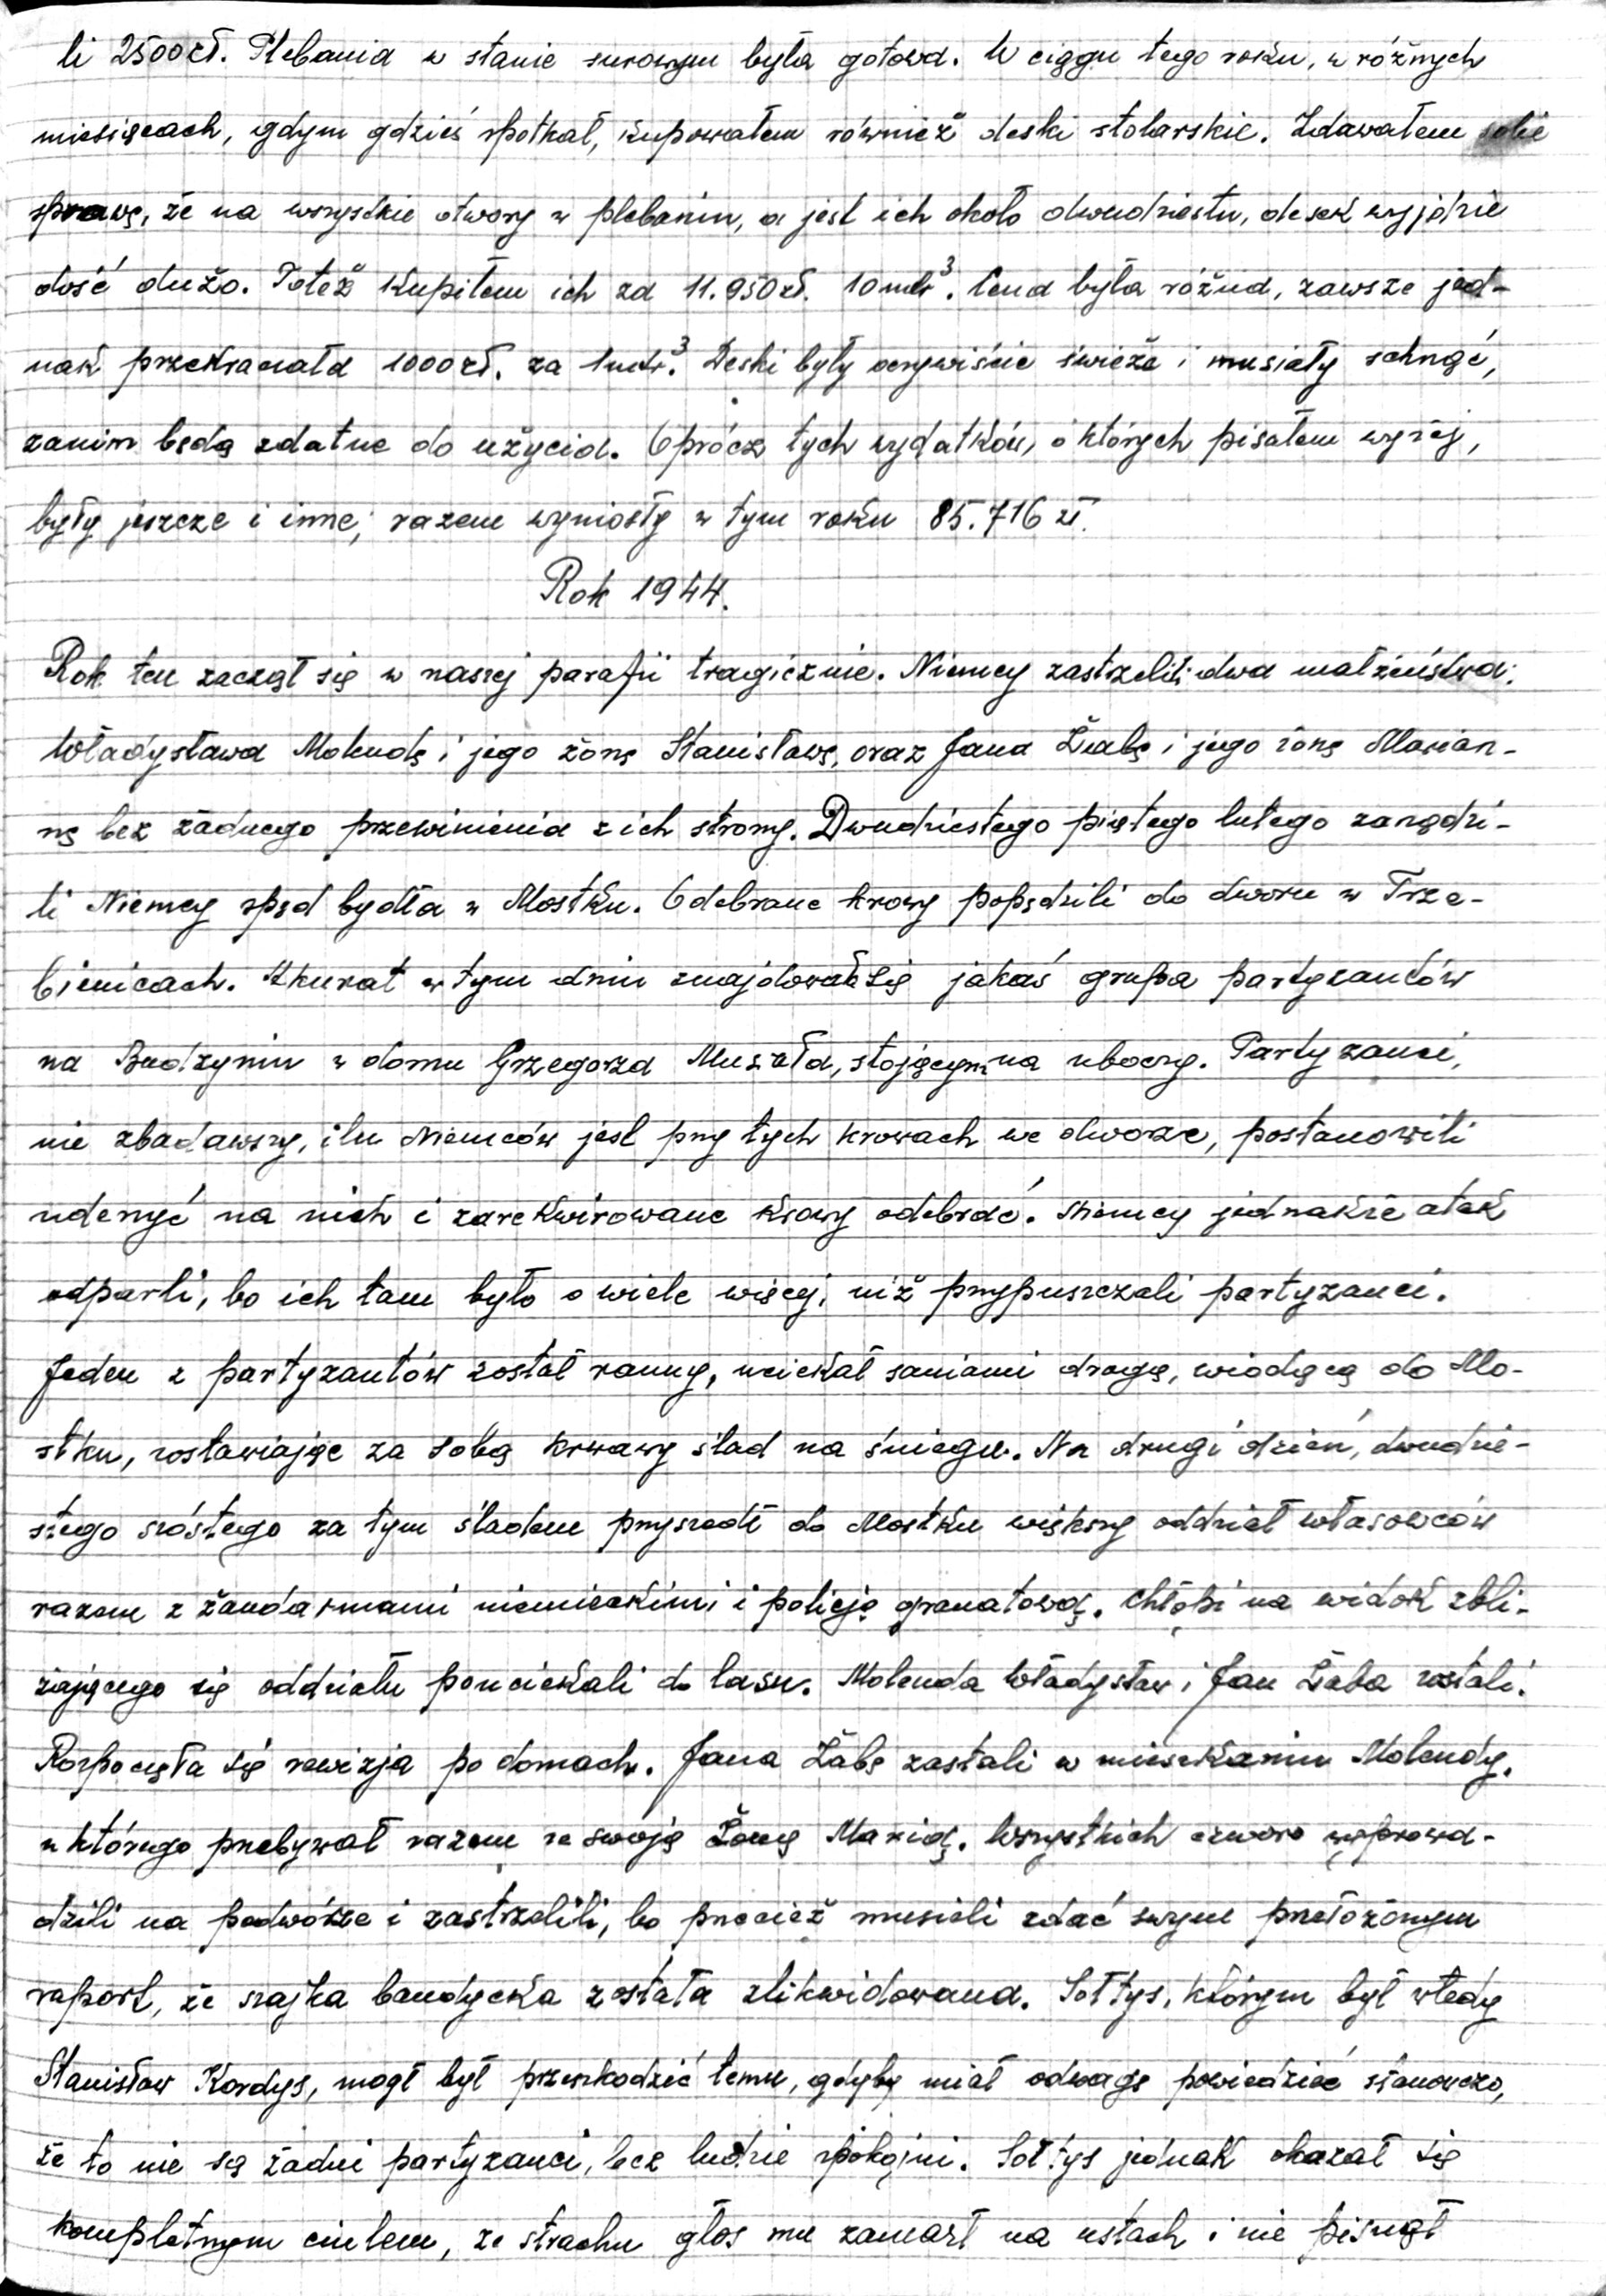 li 2500 zł. Plebania w stanie surowym była gotowa. W ciągu tego roku, w różnych
miesiącach, gdym gdzieś spotkał, kupowałem również deski stolarskie. Zdawałem sobie
sprawę, że na wszystkie otwory w plebanii, a jest ich około dwudziestu, desek wyjdzie
dość dużo. Toteż kupiłem ich za 11.950 zł. 10 mtr³. Cena była różna, zawsze jed-
nak przekraczała 1000 zł. za 1 mtr³. Deski były oczywiście świeże i musiały schnąć,
zanim będą zdatne do użycia. Oprócz tych wydatków, o których pisałem wyżej,
były jeszcze i inne; razem wyniosły w tym roku 85.716 zł.
Rok 1944.
Rok ten zaczął się w naszej parafii tragicznie. Niemcy zastrzelili dwa małżeństwa:
Władysława Molendę i jego żonę Stanisławę, oraz Jana Żabę i jego żonę Marian-
nę bez żadnego przewinienia z ich strony. Dwudziestego piątego lutego zarządzi-
li Niemcy spęd bydła w Mostku. Odebrane krowy popędzili do dworu w Trze-
bienicach. Akurat w tym dniu znajdowała się jakaś grupa partyzantów
na Budzyniu w domu Grzegorza Muszała, stojącym na uboczy. Partyzanci,
nie zbadawszy, ilu Niemców jest przy tych krowach we dworze, postanowili
uderzyć na nich i zarekwirowane krowy odebrać. Niemcy jednakże atak
odparli, bo ich tam było o wiele więcej, niż przypuszczali partyzanci.
Jeden z partyzantów został ranny, uciekał saniami drogą, wiodącą do Mo-
stku, zostawiając za sobą krwawy ślad na śniegu. Na drugi dzień, dwudzie-
stego szóstego za tym śladem przyszedł do Mostku większy oddział własowców
razem z żandarmami niemieckimi i policją granatową. Chłopi na widok zbli-
żającego się oddziału pouciekali do lasu. Molenda Władysław i Jan Żaba zostali.
Rozpoczęła się rewizja po domach. Jana Żabę zastali w mieszkaniu Molendy,
u którego przebywał razem ze swoją Żoną Marią. Wszystkich czworo wyprowa-
dzili na podwórze i zastrzelili, bo przecież musieli zdać swym przełożonym
raport, że szajka bandycka została zlikwidowana. Sołtys, którym był wtedy
Stanisław Kordys, mógł był przeszkodzić temu, gdyby miał odwagę powiedzieć stanowczo,
że to nie są żadni partyzanci, lecz ludzie spokojni. Sołtys jednak okazał się
kompletnym ciulem, ze strachu głos mu zamarł na ustach i nie pisnął